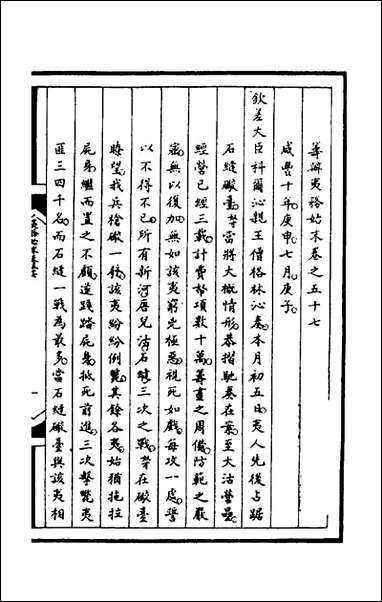 籌辦夷務始末卷之五十七
咸豐十年庚申七月庚子
欽差大臣科爾沁親王僧格林沁奏本月初五日夷人先後占踞
石縫礮臺等當將大概情形恭摺馳奏在案至大沽營壘
經營已經三載計費帑項數十萬籌畫之周備防範之嚴
密無以復加無如該夷窮兇極惡視死如戲每攻一處誓
以不得不已所有新河唐兒沽石縫三次之戰等在礮臺
瞭望我兵槍礮一發該夷紛紛倒斃其餘各夷始猶拖拉
屍身繼而置之不顧踐踏屍身抵死前進三次擊斃夷
匪三四千名而石縫一戰為最多當石縫礮臺與該夷相